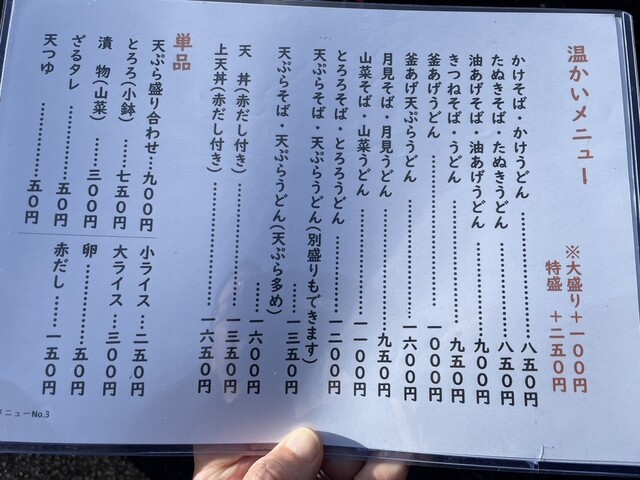 温かいメニュー
※大盛り+一〇〇円
特盛 +二五〇円
かけそば・かけうどん……八五〇円
たぬきそば・たぬきうどん……八五〇円
油あげそば・油あげうどん……九〇〇円
きつねそば・うどん……九五〇円
釜あげうどん……一〇〇〇円
釜あげ天ぷらうどん……一六〇〇円
月見そば・月見うどん……九五〇円
山菜そば・山菜うどん……一一〇〇円
とろろそば・とろろうどん……一二〇〇円
天ぷらそば・天ぷらうどん(別盛りもできます)
……一三五〇円
天ぷらそば・天ぷらうどん(天ぷら多め)
……一六〇〇円
天 丼(赤だし付き)……一三五〇円
上天丼(赤だし付き)……一六五〇円
単品
天ぷら盛り合わせ…九〇〇円
とろろ(小鉢)……七五〇円
漬 物(山菜)……三〇〇円
ざるタレ……五〇円
天つゆ……五〇円
小ライス…二五〇円
大ライス…三〇〇円
卵……五〇円
赤だし……一五〇円
メニューNo.3